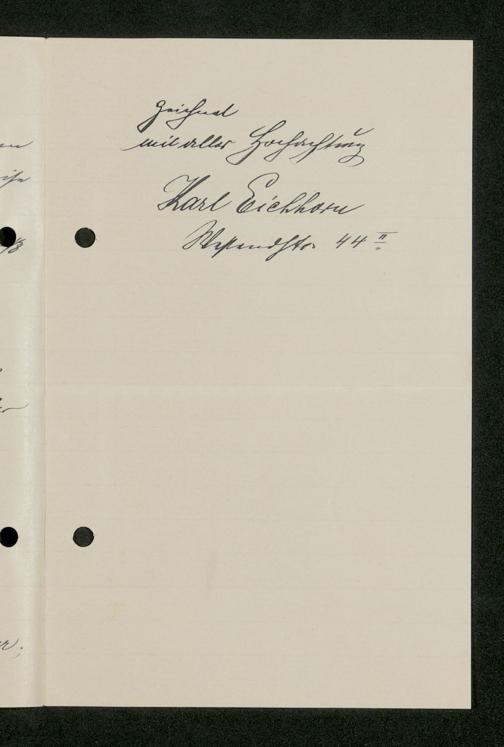 zeichnet
mit aller Hochachtung
Karl Eichhorn
Westendstr. 44 II